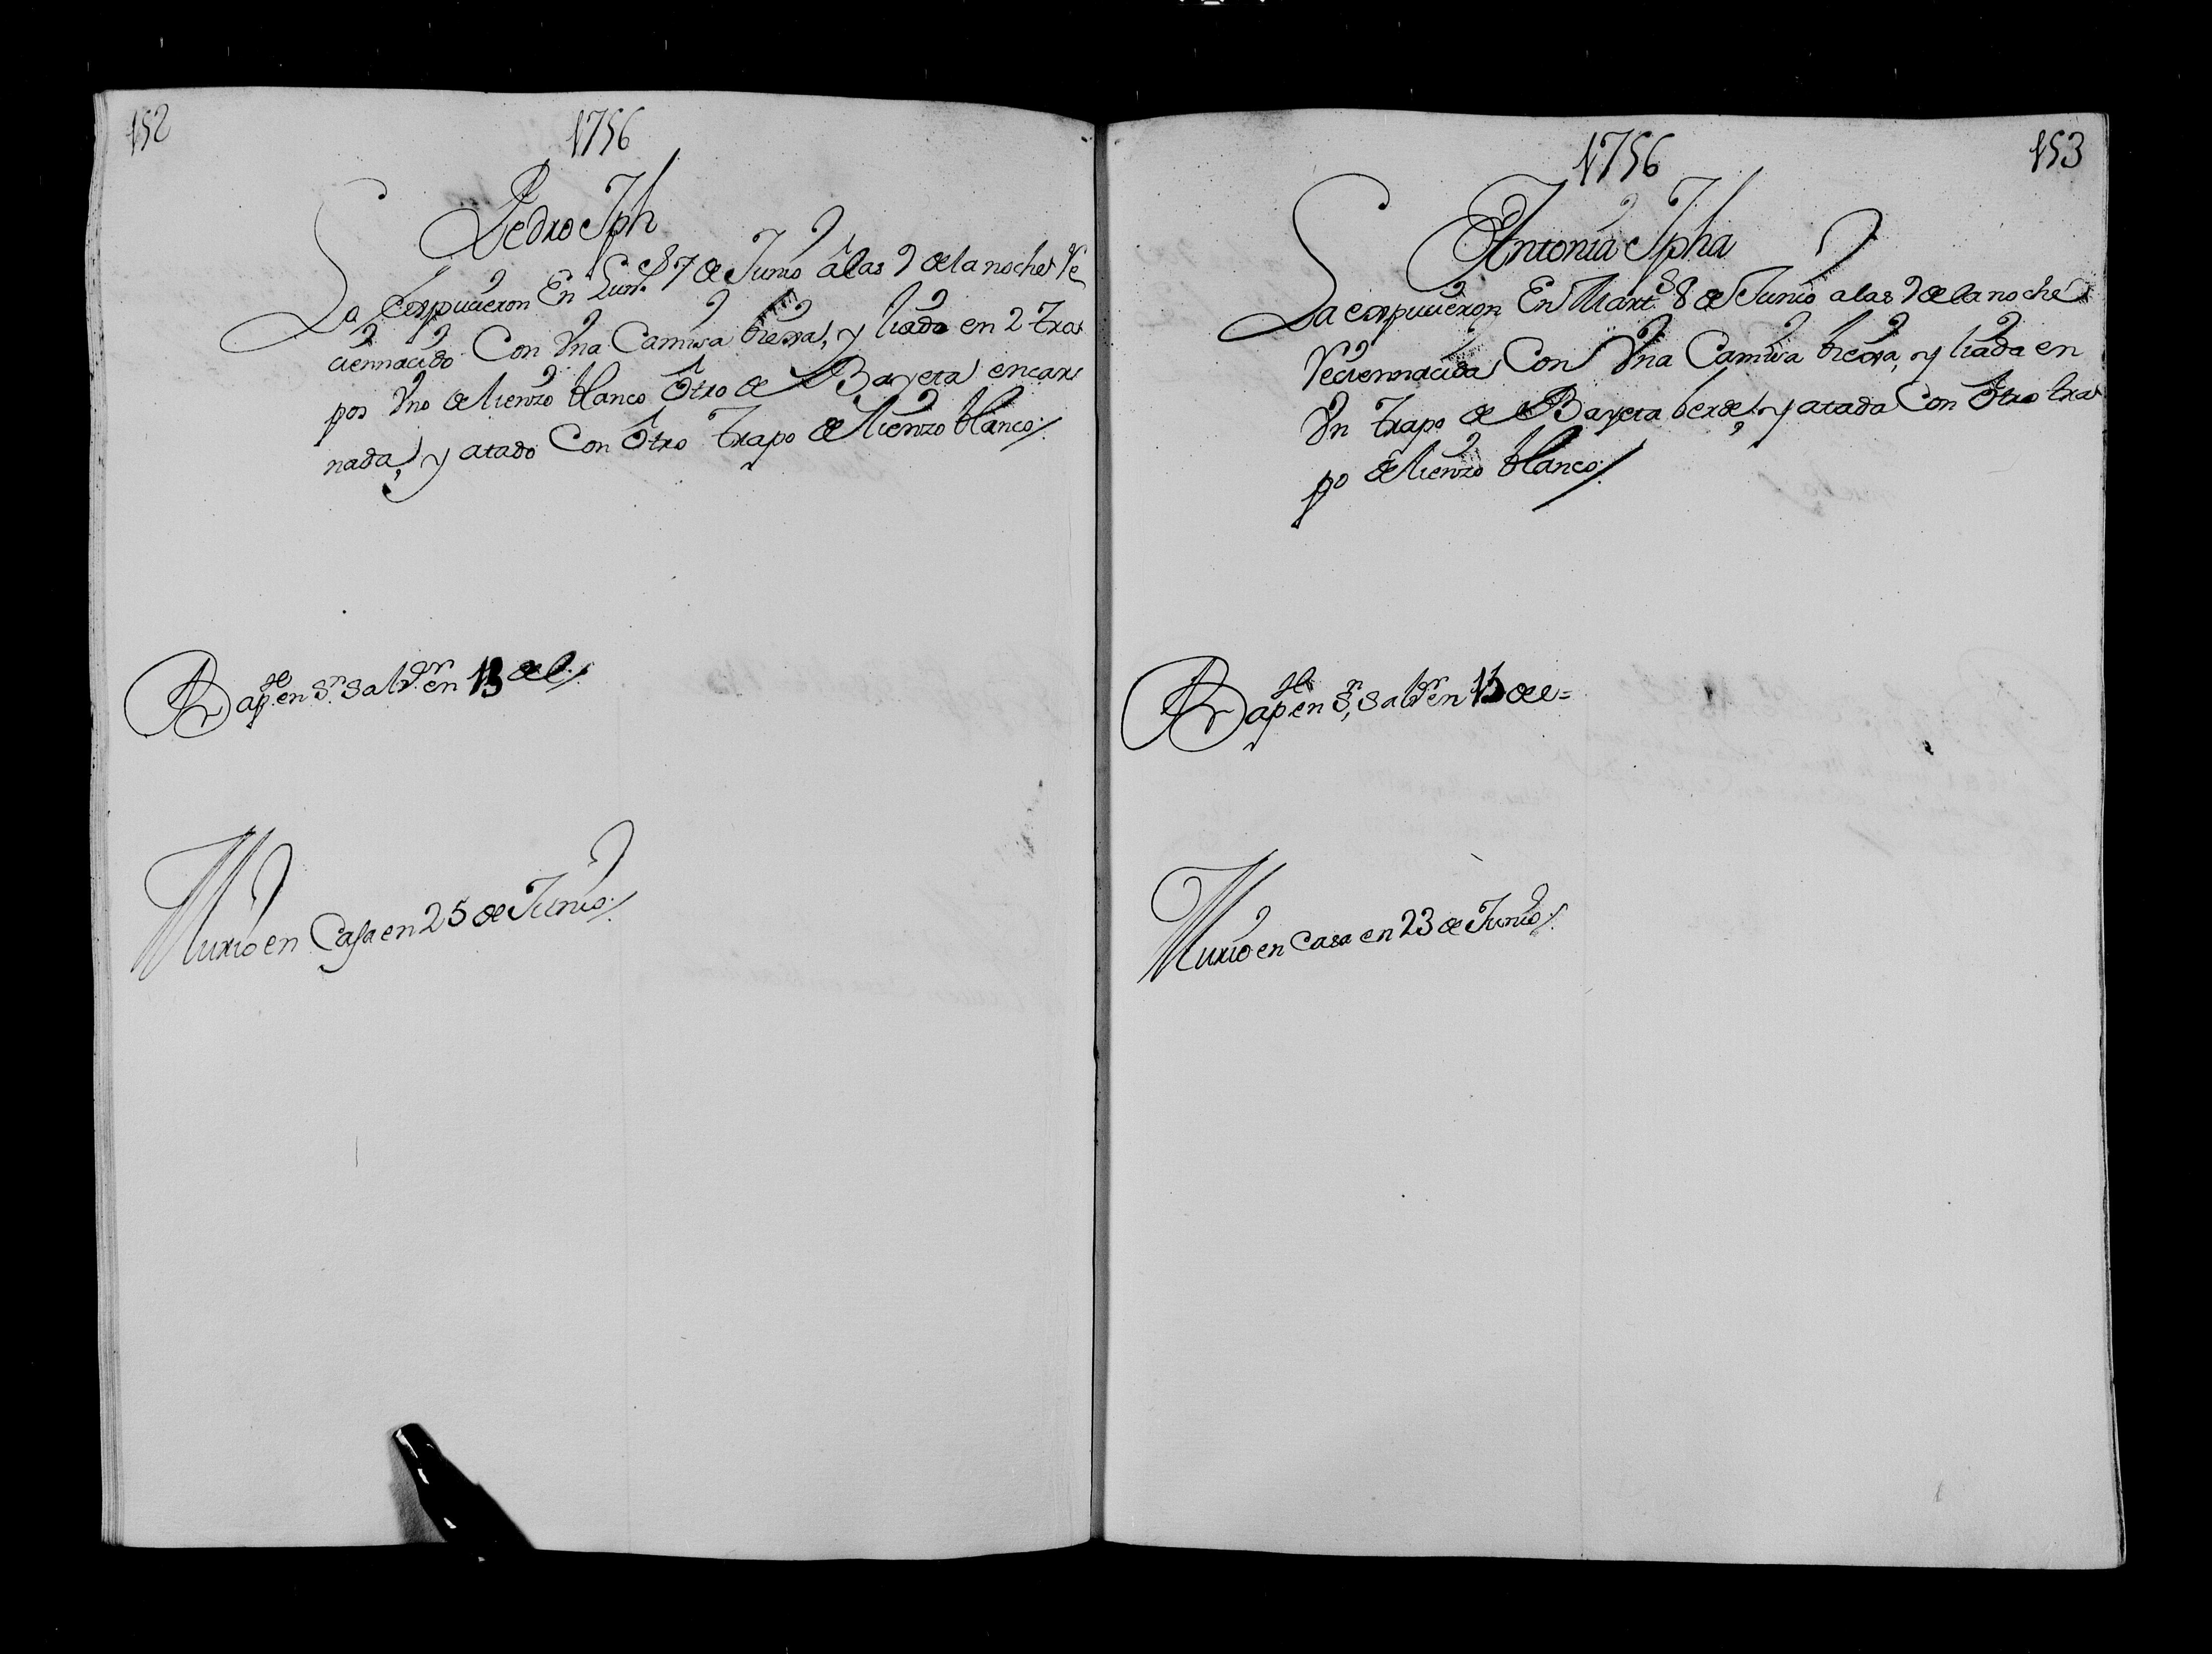 152
1756
Pedro Jph
La expusieron En Lun.s 7 de Junio a las 9 de la noche Re
ciennacido Con Vna Camisa bieja, y liado en 2 tra
pos Vno de lienzo blanco Otro de Bayeta encar
nada, y atado Con Otro Trapo de lienzo blanco
Bap.se en S.n Salv.or en 13 del
Murio en Casa en 25 de Junio
153
1756
Antonia Jpha
La expusieron En Mart.s 8 de Junio a las 9 de la noche
Reciennacida Con Vna Camisa bieja, y liada en
Vn trapo de Bayeta berde, y atada Con Otro tra
po de lienzo blanco
Bap.se en S.n Salv.or en 13 de e=
Murio en Casa en 23 de Junio